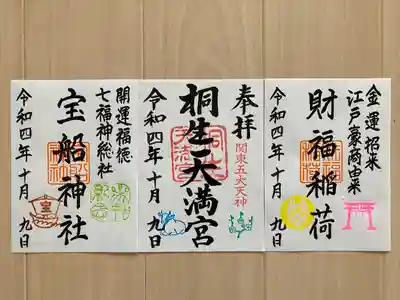 開運福徳
七福神総社
宝船神社
令和四年十月九日
奉拝
関東五大天神
桐生天満宮
令和四年十月九日
金運招来
江戸豪商由来
財福稲荷
令和四年十月九日